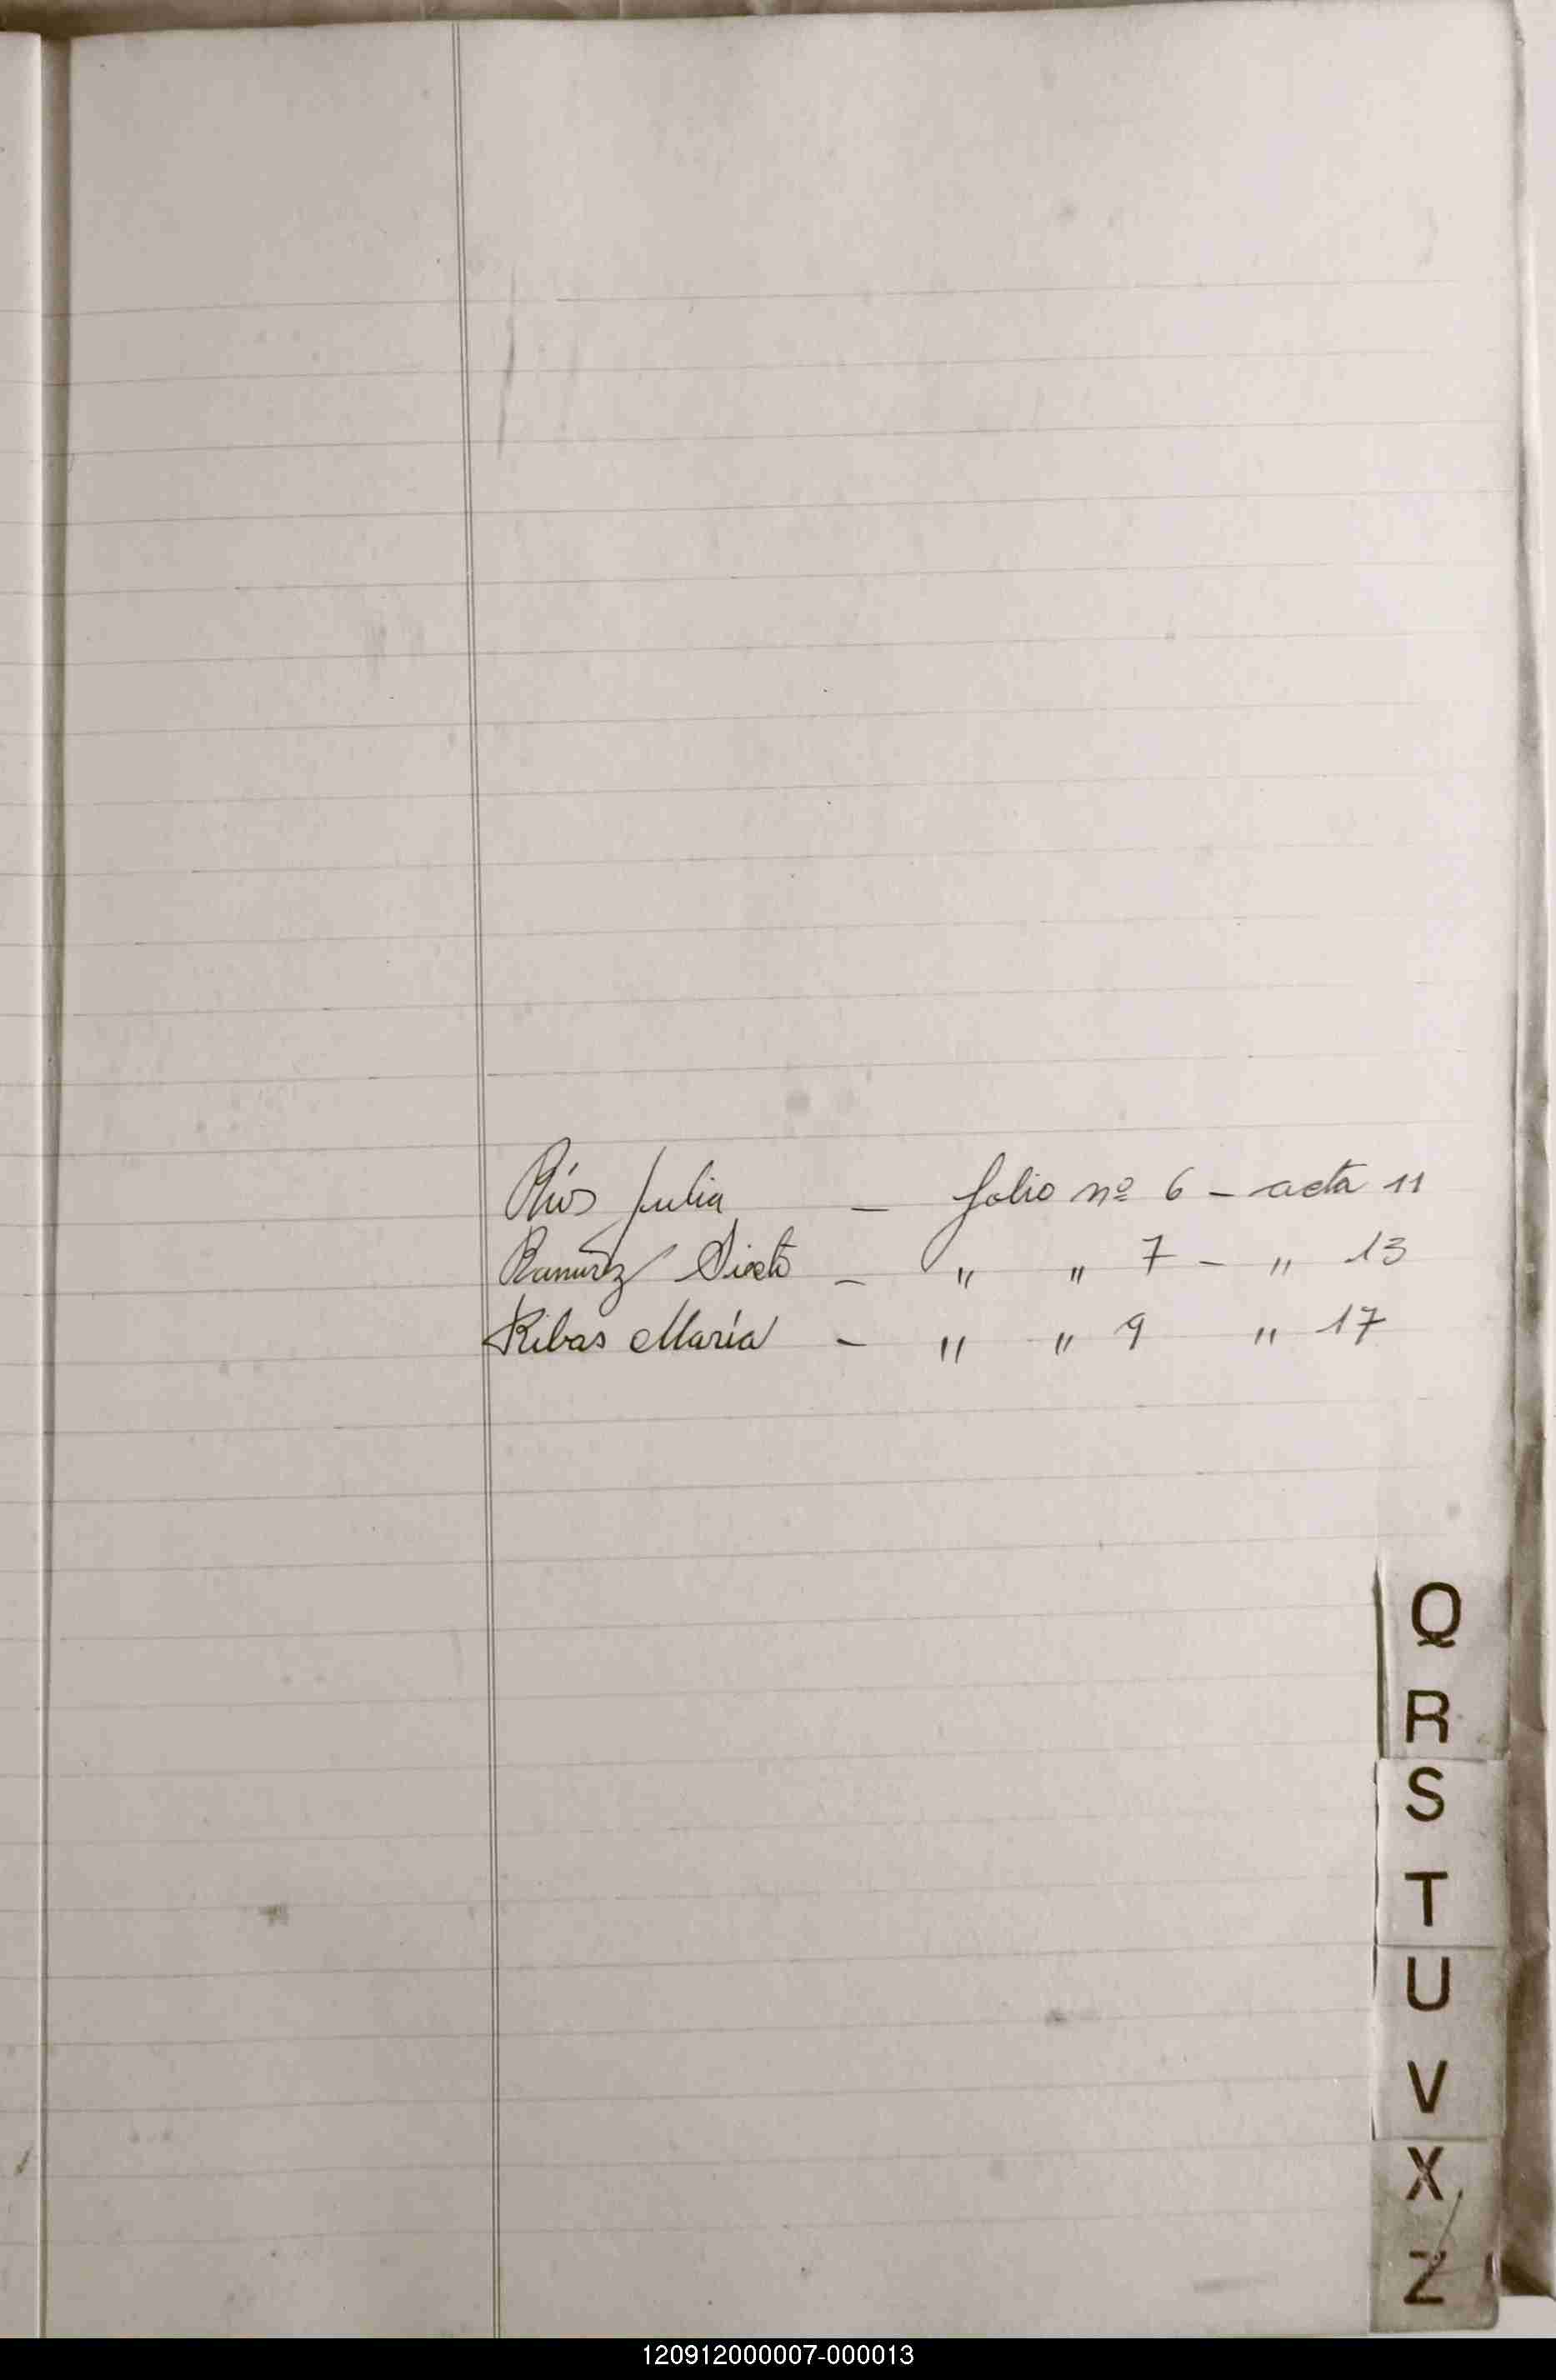 Ríos Julia — folio nº 6 — acta 11
Ramírez Sixto — " " 7 — " 13
Ribas María — " " 9 " 17
Q
R
S
T
U
V
X
Z
120912000007-000013